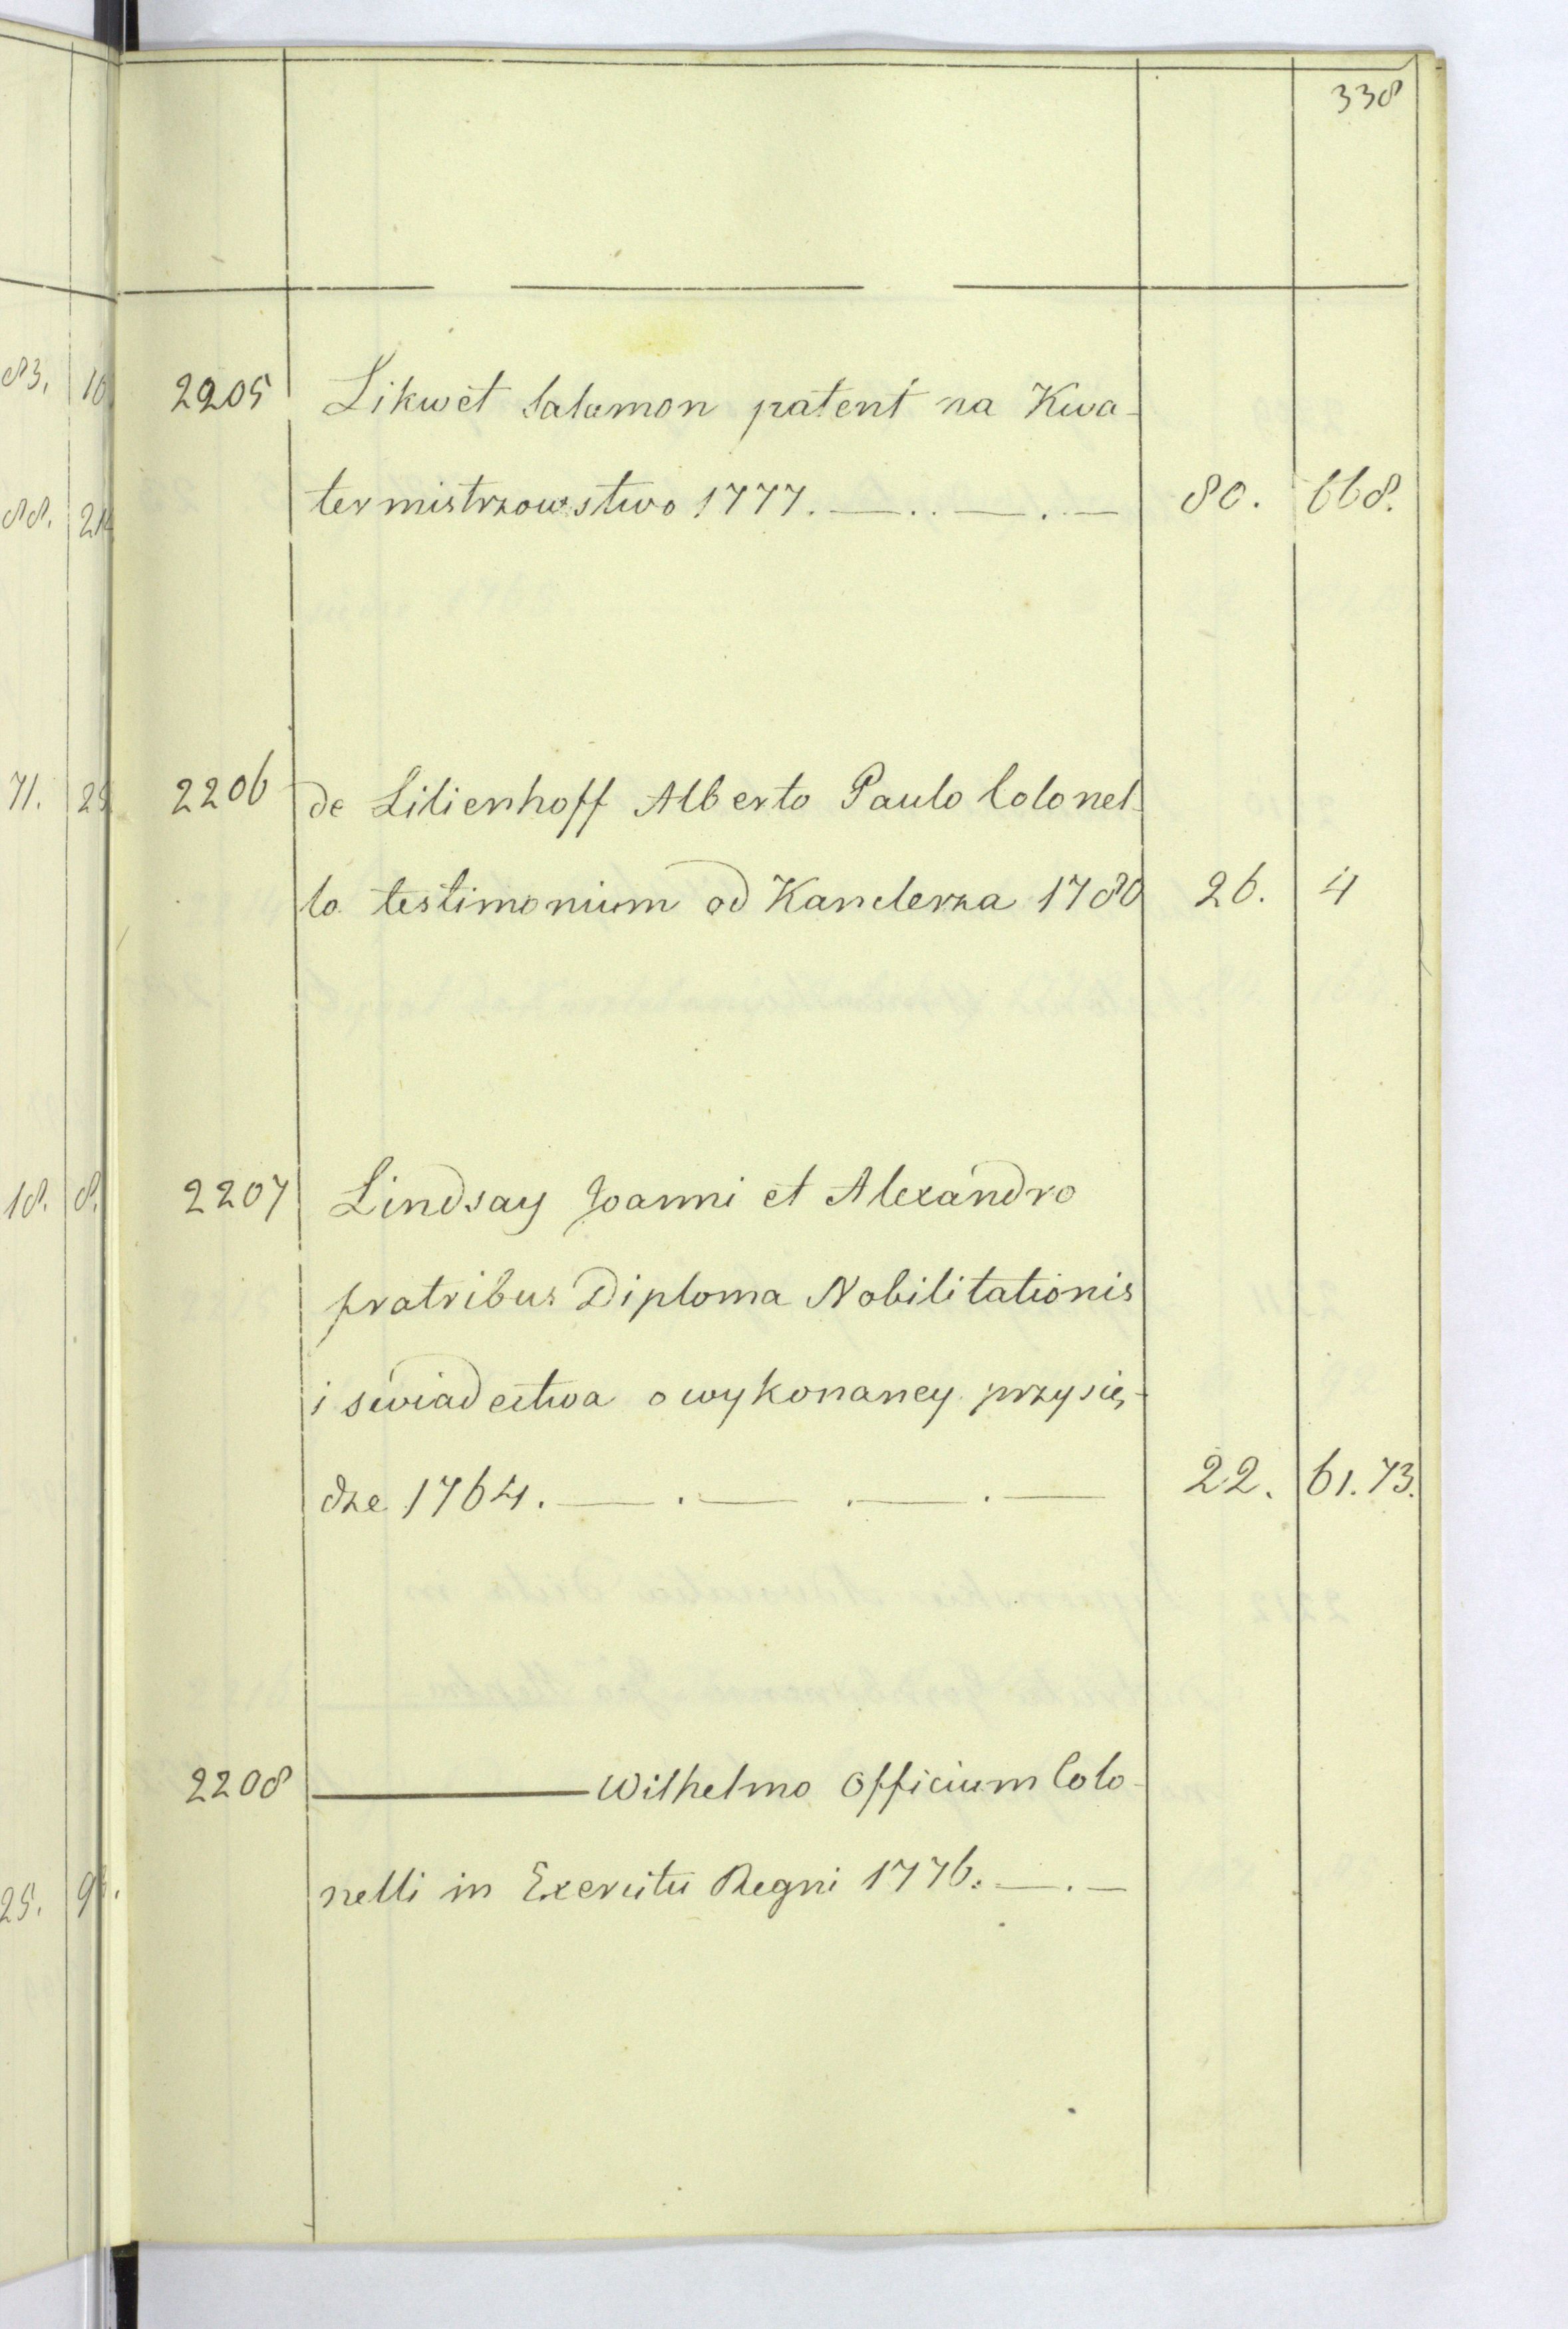 338
2205 Likwet Salamon patent na Kwa-
termistrzowstwo 1777. 80. 668.
2206 de Lilienhoff Alberto Paulo Colonel-
lo testimonium od Kanclerza 1780 26. 4
2207 Lindsay Joanni et Alexandro
fratribus Diploma Nobilitationis
i świadectwa o wykonaney przysię-
dze 1764. 22. 61.73.
2208 ——— Wilhelmo Officium Colo-
nelli in Exercitu Regni 1776.
83. 10
88.
71.
18. 8.
25.